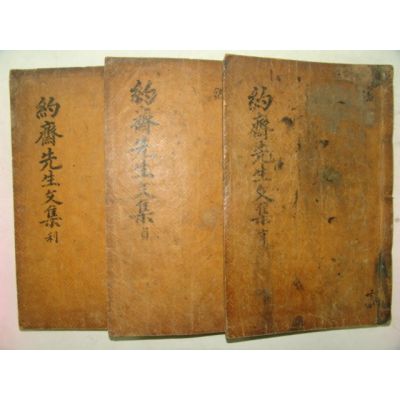 約齋先生文集 利
約齋先生文集
約齋先生文集